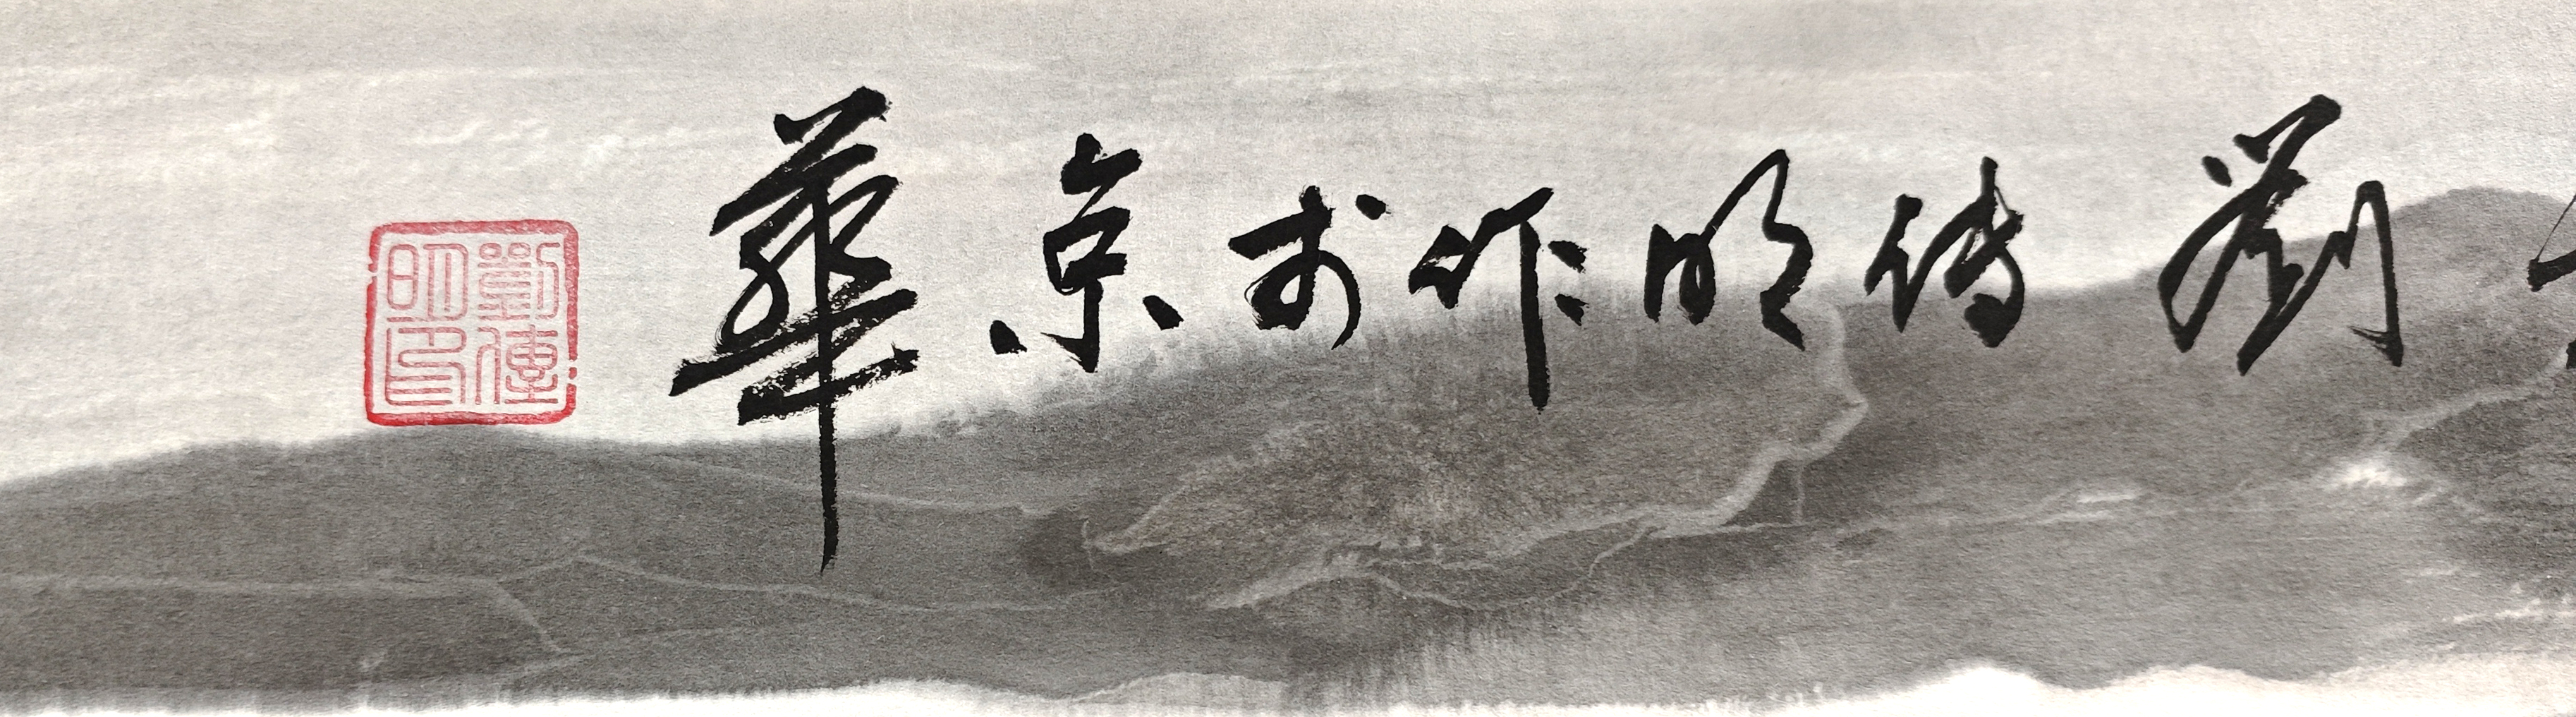 劉傳明作於京華
劉傳明印